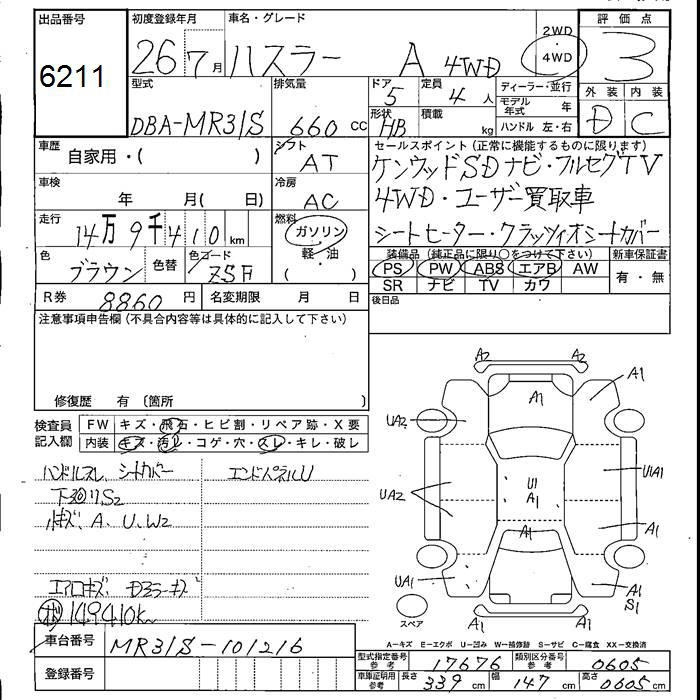 出品番号 初度登録年月 車名・グレード 2WD・4WD 評価点
6211 26 7月 ハスラー A 4WD 3
型式 排気量 ドア 定員 ディーラー・並行 外装 内装
DBA-MR31S 660cc 5 4人 モデル年式 年 D C
形状 積載 ハンドル 左・右
HB kg
車歴 シフト セールスポイント(正常に機能するものに限ります)
自家用・( ) AT ケンウッドSDナビ・フルセグTV
車検 冷房 4WD・ユーザー買取車
年 月( 日) AC シートヒーター・クラッツィオシートカバー
走行 燃料
14万9千410km ガソリン・軽・油 ( )
色 色替 色コード 装備品(純正品に限り○をつけて下さい) 新車保証書
ブラウン PS PW ABS エアB AW 有・無
R券 円 名変期限 月 日 SR ナビ TV カワ
8860 後日品
注意事項申告欄(不具合内容等は具体的に記入して下さい)
修復歴 有〔箇所 〕
検査員記入欄 FW キズ・飛石・ヒビ割・リペア跡・X要
内装 キズ・汚レ・コゲ・穴・スレ・キレ・破レ
ハンドルスレ、シートカバー エンドパネルU
S2
キズ、A、U、W2
エアロキズ Dミラーキズ
149410k~
車台番号 MR31S-101216
登録番号
A2 A2
A1 A1 A1
UA2
U1 A1 U1A1
UA2 A1
UA1 A1 A1 S1
スペア A1 A1
A-キズ E-エクボ U-凹み W-補修跡 S-サビ C-腐食 XX-交換済
型式指定番号 参考 17676 類別区分番号 参考 0605
車庫証明用 参考 長さ 339cm 幅 147cm 高さ 0605cm